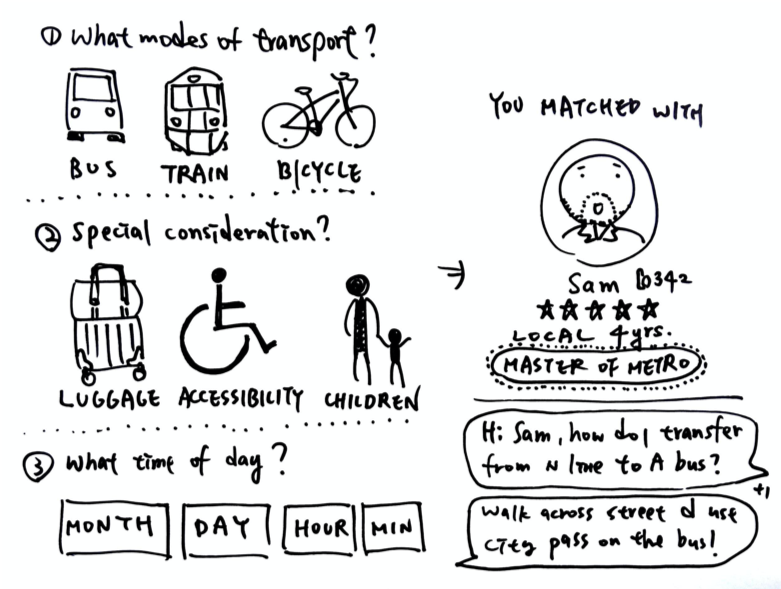 ① What modes of transport?
BUS TRAIN BICYCLE
② Special consideration?
LUGGAGE ACCESSIBILITY CHILDREN
③ What time of day?
MONTH DAY HOUR MIN
YOU MATCHED WITH
Sam 342
LOCAL 4yrs.
MASTER OF METRO
Hi Sam, how do I transfer
from N line to A bus?
+1
Walk across street & use
city pass on the bus!